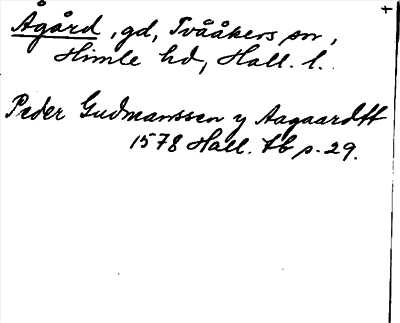 Ågård, gd, Tvååkers sn,
Himle hd, Hall. l.
Peder Gudmanssen y Aagaardtt
1578 Hall. tb p. 29.